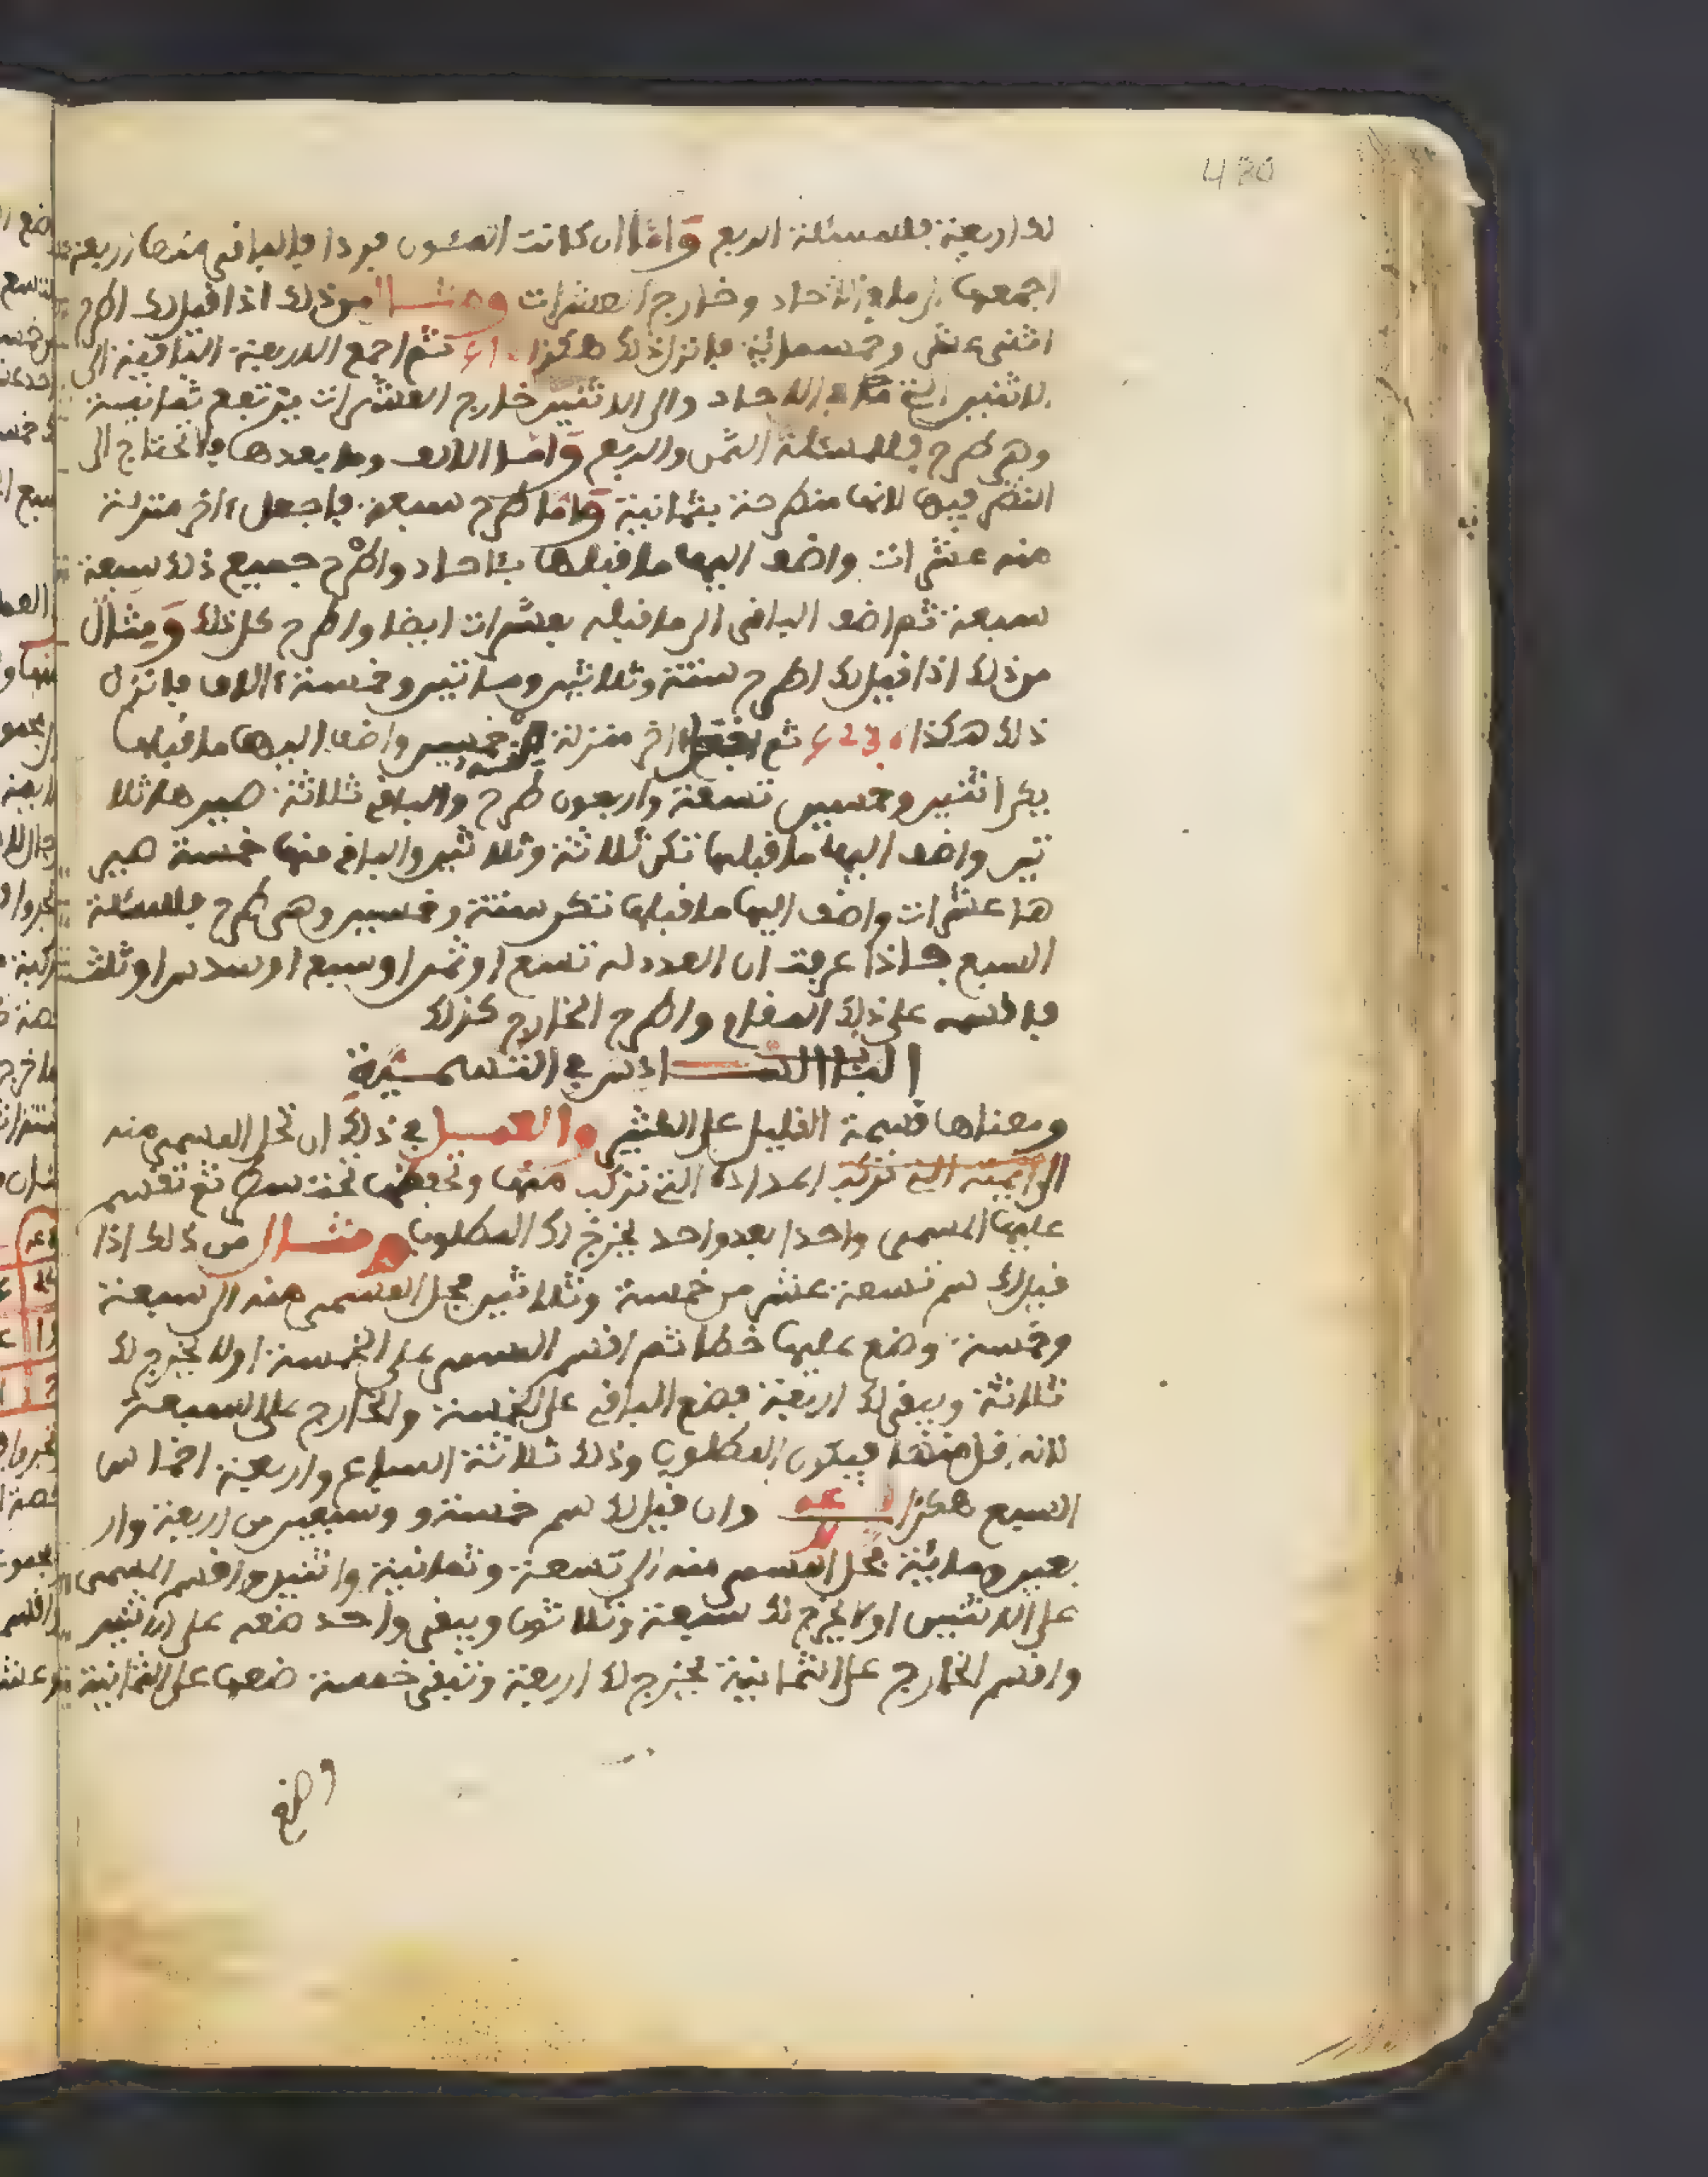 480
لك اربعة فللمسئلة الربع وَامَّا ان كانت المئون فردا فالباقي منها اربعة
اجمعها الى ما في الاحاد وخارج العشرات ومثال من ذلك اذا قيل لك اطرح
اثنى عشر وخمسمائة فانزل ذلك هكذا ثم اجمع الاربعة الباقية الى
الاثنين التي في الاحاد والى الاثنين خارج العشرات يرتفع ثمانية
وهي طرح فللمسئلة الثمن والربع وَامَّا الالاف وما بعدها فلا تحتاج الى
النظر فيها لانها منطرحة بثمانية وَامَّا طرح سبعة فاجعل ءاخر منزلة
منه عشرات واضف اليها ما قبلها بئاحاد واطرح جميع ذلك سبعة
سبعة ثم اضف الباقى الى ما قبله بعشرات ايضا واطرح كل ذلك وَمِثال
من ذلك اذا قيل لك اطرح ستة وثلاثين وماتين وخمسة ءالاف فانزل
ذلك هكذا ثم ءاخر منزلة خمسين واضف اليها ما قبلها
يكن اثنين وخمسين تسعة واربعون طرح والباقي ثلاثة صيرها ثلا
ثين واضف اليها ما قبلها تكن ثلاثة وثلاثين والباقي منها خمسة صير
ها عشرات واضف اليها ما قبلها تكن ستة وخمسين وهي طرح فللمسئلة
السبع فاذا عرفت ان العدد له تسع او ثمن او سبع او سدس او ثلث
فاقسمه على ذلك المقام واطرح الخارج كذلك
الباب السادس في التسمية
ومعناها قسمة القليل على الكثير والعمل في ذلك ان تحل المسمى منه
الى ايمته التي تركب اعداده التي تركب منها وتحفظها تحت سطر ثم تقسم
عليها المسمى واحدا بعد واحد يخرج لك المطلوب ومثال من ذلك اذا
قيل لك سم تسعة عشر من خمسة وثلاثين فحل المسمى منه الى سبعة
وخمسة وضع عليها خطا ثم اقسم المسمى على الخمسة اولا يخرج لك
ثلاثة ويبقى لك اربعة فضع الباقي على الخمسة والخارج على السبعة
لانه اقل منها فيكون المطلوب وذلك ثلاثة اسباع واربعة اخماس
السبع هكذا وان قيل لك سم خمسة و وسبعين من اربعة وار
بعين ومائة فحل المسمى منه الى تسعة وثمانية واثنين واقسم المسمى
على الاثنين اولا يخرج لك سبعة وثلاثون ويبقى واحد ضعه على الاثنين
واقسم الخارج على الثمانية يخرج لك اربعة وتبقى خمسة ضعها على الثمانية